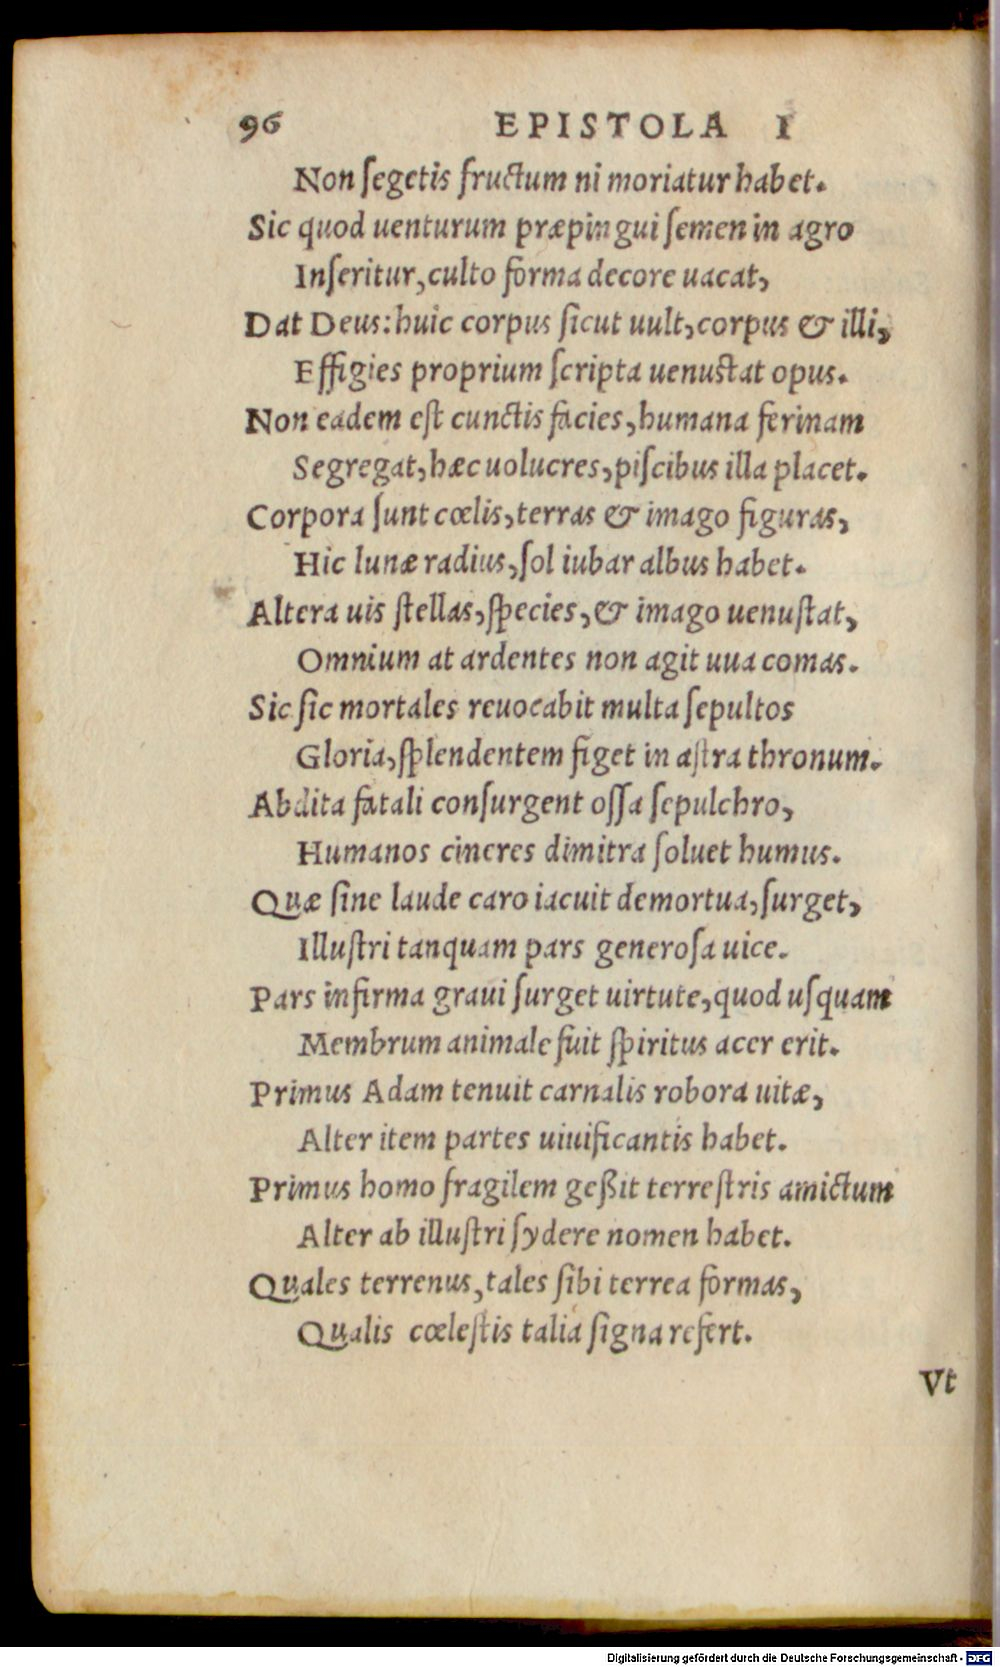 96 EPISTOLA I
Non ſegetis fructum ni moriatur habet.
Sic quod uenturum præpingui ſemen in agro
Inſeritur, culto forma decore uacat,
Dat Deus: huic corpus ſicut uult, corpus & illi,
Effigies proprium ſcripta uenuſtat opus.
Non eadem eſt cunctis facies, humana ferinam
Segregat, hæc uolucres, piſcibus illa placet.
Corpora ſunt cœlis, terras & imago figuras,
Hic lunæ radius, ſol iubar albus habet.
Altera uis ſtellas, ſpecies, & imago uenuſtat,
Omnium at ardentes non agit uua comas.
Sic ſic mortales reuocabit multa ſepultos
Gloria, ſplendentem figet in aſtra thronum.
Abdita fatali conſurgent oſſa ſepulchro,
Humanos cineres dimitra ſoluet humus.
Quæ ſine laude caro iacuit demortua, ſurget,
Illuſtri tanquam pars generoſa uice.
Pars infirma graui ſurget uirtute, quod uſquam
Membrum animale fuit ſpiritus acer erit.
Primus Adam tenuit carnalis robora uitæ,
Alter item partes uiuificantis habet.
Primus homo fragilem geßit terreſtris amictum
Alter ab illuſtri ſydere nomen habet.
Quales terrenus, tales ſibi terrea formas,
Qualis cœleſtis talia ſigna refert.
Vt
Digitalisierung gefördert durch die Deutsche Forschungsgemeinschaft - DFG